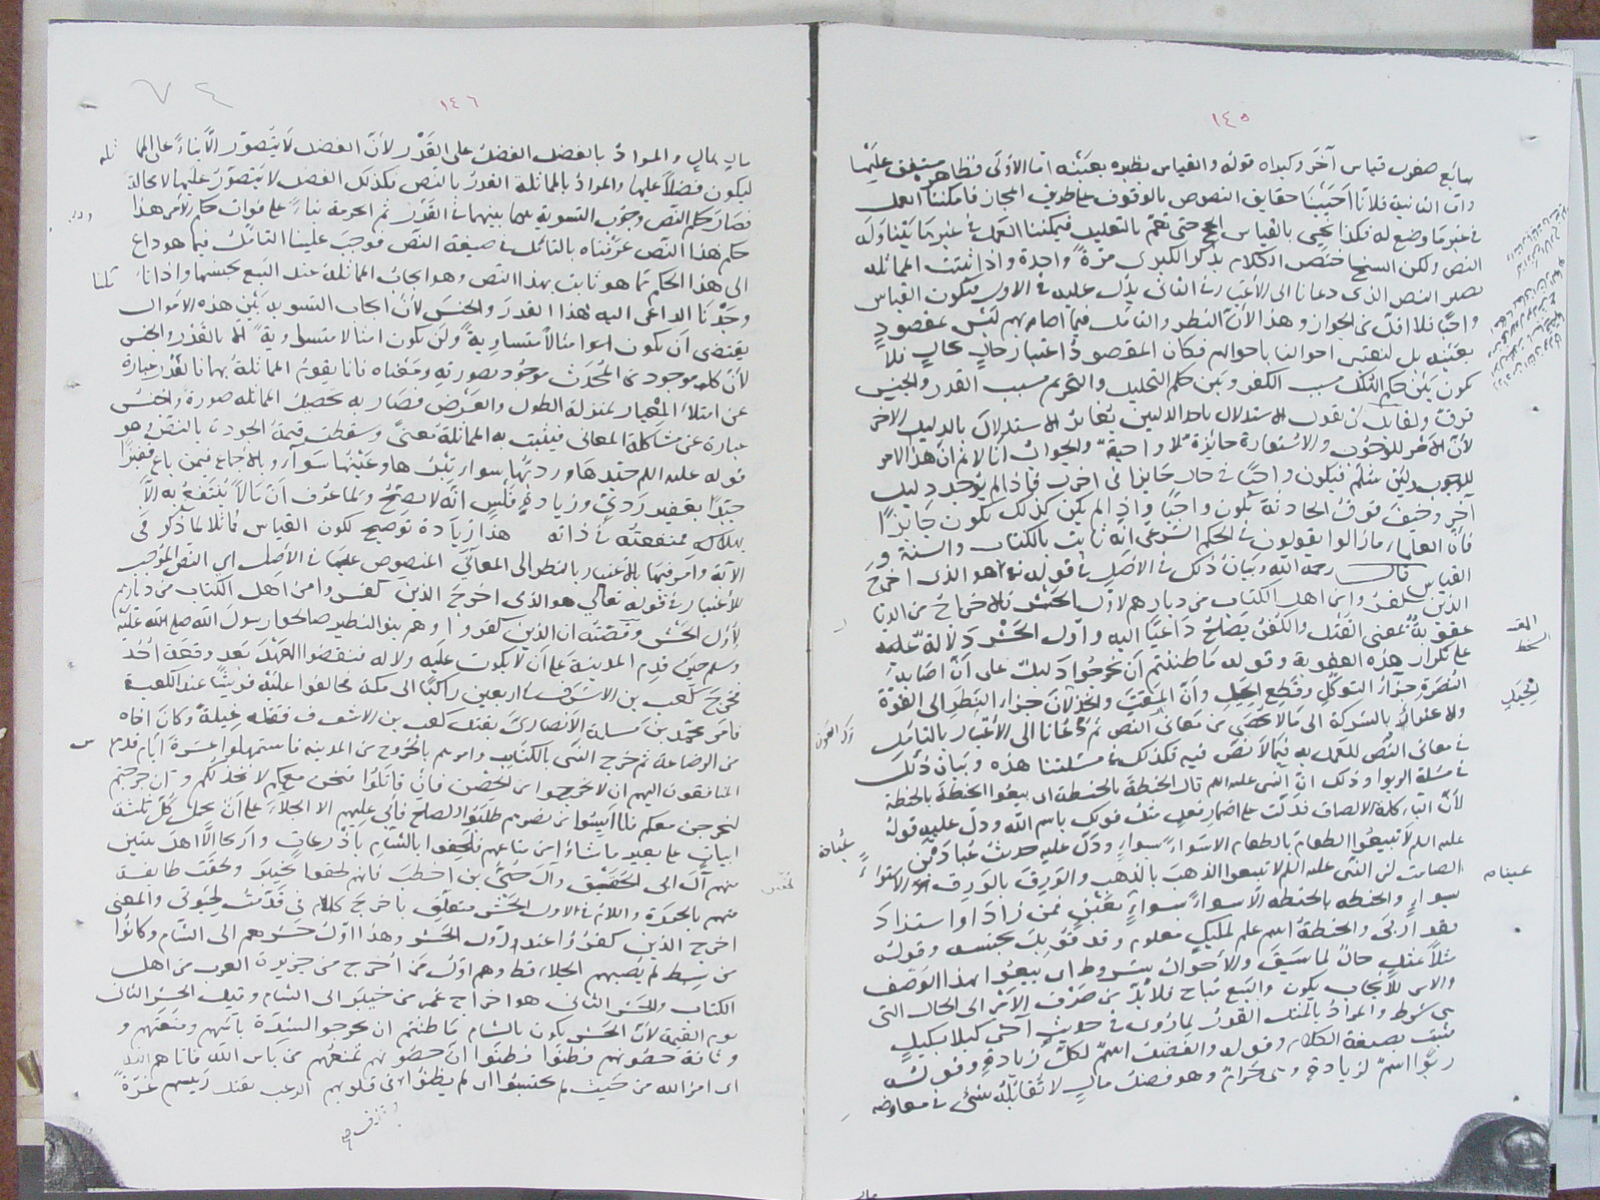 ١٤٥
سابع صغرى قياس آخر وكبراه قوله والقياس نظيره بعينه اما الأولى فظاهر متفق عليها
واما الثانية فلانا احيينا حقايق النصوص بالوقوف على طريق المجاز فامكننا العمل
في غير ما وضع له فكذا نحيي بالقياس الحجج حتى تعم بالتعليل فيمكننا العمل في غير ما يتناوله
النص ولكن الشيخ اختصر الكلام بذكر الكبرى مرة واحدة واذا ثبتت المماثلة
يصير النص الذي دعانا الى الاعتبار في الثاني يدل عليه في الاول فيكون القياس
واجبا فلا اقل من الجواز وهذا لأن النظر والتأمل فيما اصابهم ليس بمقصود
بعينه بل لنعتبر احوالنا باحوالهم فكان المقصود اعتبار حال بحال فلا
يكون بين حكم الهلاك بسبب الكفر وبين حكم التحليل والتحريم بسبب القدر والجنس
فرق ولقائل ان يقول الاستدلال باحد الدليلين يغاير الاستدلال بالدليل الآخر
لأن الأمر للوجوب والاستعارة جائزة لا واجبة والجواب انا لا نم ان هذا الامر
للوجوب ولئن سلم فيكون واجبا في حال جايزا في اخرى فاذا لم يوجد دليل
آخر وخيف فوت الحادثة يكون واجبا واذا لم يكن كذلك يكون جايزا
فان العلماء ما زالوا يقولون في الحكم الشرعي انه ثابت بالكتاب والسنة و
القياس قال رحمه الله وبيان ذلك في الأصل في قوله تعالى هو الذي اخرج
الذين كفروا من اهل الكتاب من ديارهم لأول الحشر فالاخراج من الديار
عقوبة بمعنى القتل والكفر يصلح داعيا اليه واول الحشر دلالة على
على تكرار هذه العقوبة وقوله ما ظننتم أن يخرجوا دليل على أن اصابة
النصرة جزاء التوكل وقطع الحيل وأن المقت والخذلان جزاء النظر الى القوة
والاعتزاز بالشركة الى ما لا يحصى من معاني النص ثم دعانا الى الاعتبار بالتأمل
في معاني النص للعمل به فيما لا نص فيه فكذلك في مسئلتنا هذه وبيان ذلك
في مسئلة الربوا وذلك ان النبي عليه السلم قال الحنطة بالحنطة اى بيعوا الحنطة بالحنطة
لأن الباء كلمة الالصاق فدلت على اضمار فعل مثل قولك باسم الله ودل عليه قوله
عليه السلم لا تبيعوا الطعام بالطعام الا سواء بسواء ودل عليه حديث عبادة بن
الصامت ان النبي عليه السلم لا تبيعوا الذهب بالذهب والورق بالورق
بسواء والحنطة بالحنطة الا سواء بسواء عينا بعين فمن زاد او استزاد
فقد اربى والحنطة اسم علم لمكيل معلوم وقد قوبل بجنسه وقوله
مثلا بمثل حال لما سبق والاحوال شروط اى بيعوا بهذا الوصف
والامر للايجاب يكون والبيع مباح فلا بد من صرف الأمر الى الحال التي
هي شرط والمراد بالمثل القدر لما روى في حديث آخر كيلا بكيل
فثبت بصيغة الكلام وقوله والفضل اسم لكل زيادة وقوله
ربوا اسم لزيادة هي حرام وهو فضل مال لا يقابله شيء في معاوضة
عيناه
١٤٦
٧٤
مال بمال والمراد بالفضل الفضل على القدر لأن الفضل لا يتصور الا بناء على المماثلة
ليكون فضلا عليها والمراد بالمماثلة القدر بالنص فكذلك الفضل لا يتصور عليها لا محالة
فصار حكم النص وجوب التسوية بينهما في القدر ثم الحرمة بناء على فوات حكم الأمر هذا
حكم هذا النص عرفناه بالتأمل في صيغة النص فوجب علينا التأمل فيما هو داع
الى هذا الحكم مما هو ثابت بهذا النص وهو ايجاب المماثلة عند البيع بجنسها واذا تأملنا
وجدنا الداعى اليه هذا القدر والجنس لأن ايجاب التسوية بين هذه الأموال
يقتضى أن يكون امثالا متساوية ولن يكون امثالا متساوية الا بالقدر والجنس
لأن كل موجود من المحدث موجود بصورته ومعناه فانما يقوم المماثلة بهما فالقدر عبارة
عن امتلاء المعيار بمنزلة الطول والعرض فصار به يحصل المماثلة صورة والجنس
عبارة عن مشاكلة المعاني فيثبت به المماثلة معنى وسقطت قيمة الجودة بالنص وهو
قوله عليه السلم جيدها ورديها سواء تبرها وعينها سواء وبالاجماع فيمن باع قفيزا
جيدا بقفيز ردي وزيادة فلس انه لا يصح ولما عرف ان مالا ينتفع به الا
بهلاكه فمنفعته في ذاته هذا زيادة توضيح لكون القياس مماثلا لما ذكر في
الآية وامر فيها بالاعتبار بالنظر الى المعاني المنصوص عليها في الأصل اي النص الموجب
للاعتبار في قوله تعالى هو الذي اخرج الذين كفروا من اهل الكتاب من ديارهم
لأول الحشر وقصته ان الذين كفروا وهم بنو النضير صالحوا رسول الله صلى الله عليه
وسلم حين قدم المدينة على أن لا يكون عليه ولا له فنقضوا العهد بعد وقعة أحد
فخرج كعب بن الاشرف في اربعين راكبا الى مكة فحالفوا عليه قريشا عند الكعبة
فامر محمد بن مسلمة الأنصاري بقتل كعب بن الاشرف فقتله غيلة وكان اخاه
من الرضاعة ثم خرج النبي بالكتايب وامرهم بالخروج من المدينة فاستمهلوا عشرة أيام فدس
المنافقون اليهم ان لا تخرجوا من الحصن فان قاتلوا فنحن معكم لا نخذلكم وان خرجتم
لنخرجن معكم فلما أيسوا من نصرهم طلبوا الصلح فأبى عليهم الا الجلاء على أن يحمل كل ثلثة
ابيات على بعير ما شاؤا من متاعهم فلحقوا بالشام باذرعات واريحا الا اهل بيتين
منهم آل ابى الحقيق وآل حيى بن اخطب فانهم لحقوا بخيبر ولحقت طائفة
منهم بالحيرة واللام في لاول الحشر متعلق باخرج كاللام في قدمت لحيوتي والمعنى
اخرج الذين كفروا عند اول الحشر وهذا اول حشرهم الى الشام وكانوا
من سبط لم يصبهم الجلاء قط وهم اول من أخرج من جزيرة العرب من اهل
الكتاب والحشر الثاني هو اخراج عمر من خيبر الى الشام وقيل الحشر الثاني
يوم القيمة لأن الحشر يكون بالشام ما ظننتم ان يخرجوا لشدة بأسهم ومنعتهم و
وثاقة حصونهم فظنوا وظنوا ان حصونهم تمنعهم من بأس الله فاتاهم الله
اى امر الله من حيث لم يحتسبوا اى لم يظنوا في قلوبهم الرعب بقتل رئيسهم غرة